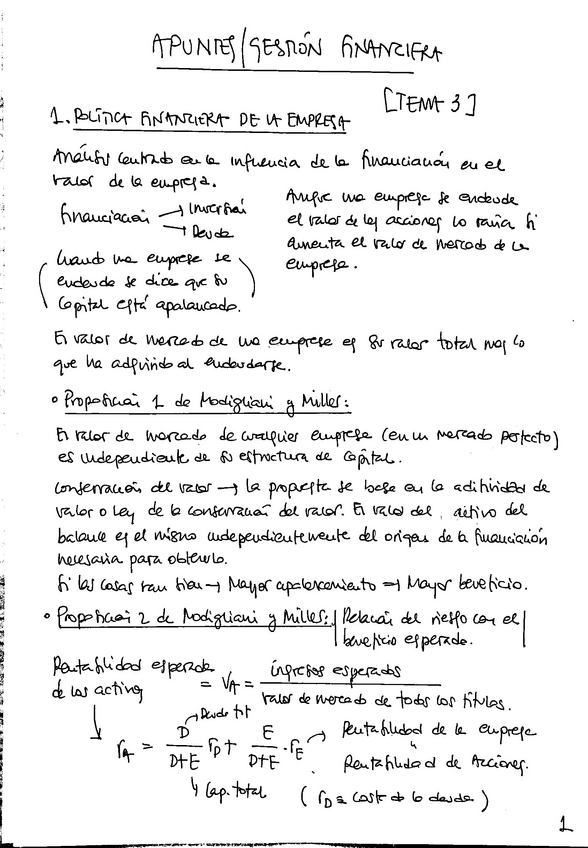 APUNTES/GESTIÓN FINANCIERA
[TEMA 3]
1. POLÍTICA FINANCIERA DE LA EMPRESA
Análisis centrado en la influencia de la financiación en el
valor de la empresa.
financiación → Inversión
→ Deuda
Aunque una empresa se endeude
el valor de las acciones lo varía si
aumenta el valor de mercado de la
empresa.
Cuando una empresa se
endeuda se dice que su
Capital está apalancado.
El valor de mercado de una empresa es su valor total mas lo
que ha adquirido al endeudarse.
• Proposición 1 de Modigliani y Miller:
El valor de mercado de cualquier empresa (en un mercado perfecto)
es independiente de su estructura de capital.
Conservación del valor → la propuesta se basa en la aditividad de
valor o ley de la conservación del valor. El valor del activo del
balance es el mismo independientemente del origen de la financiación
necesaria para obtenerlo.
Si las cosas van bien → Mayor apalancamiento → Mayor beneficio.
• Proposición 2 de Modigliani y Miller: | Relación del riesgo con el
beneficio esperado. |
Rentabilidad esperada
de los activos
= VA = ingresos esperados
valor de mercado de todos los títulos.
→ Deuda tot
rA = D/D+E rD + E/D+E · rE → Rentabilidad de la empresa
"
Rentabilidad de Acciones.
↳ Cap. total (rD = coste de la deuda)
1